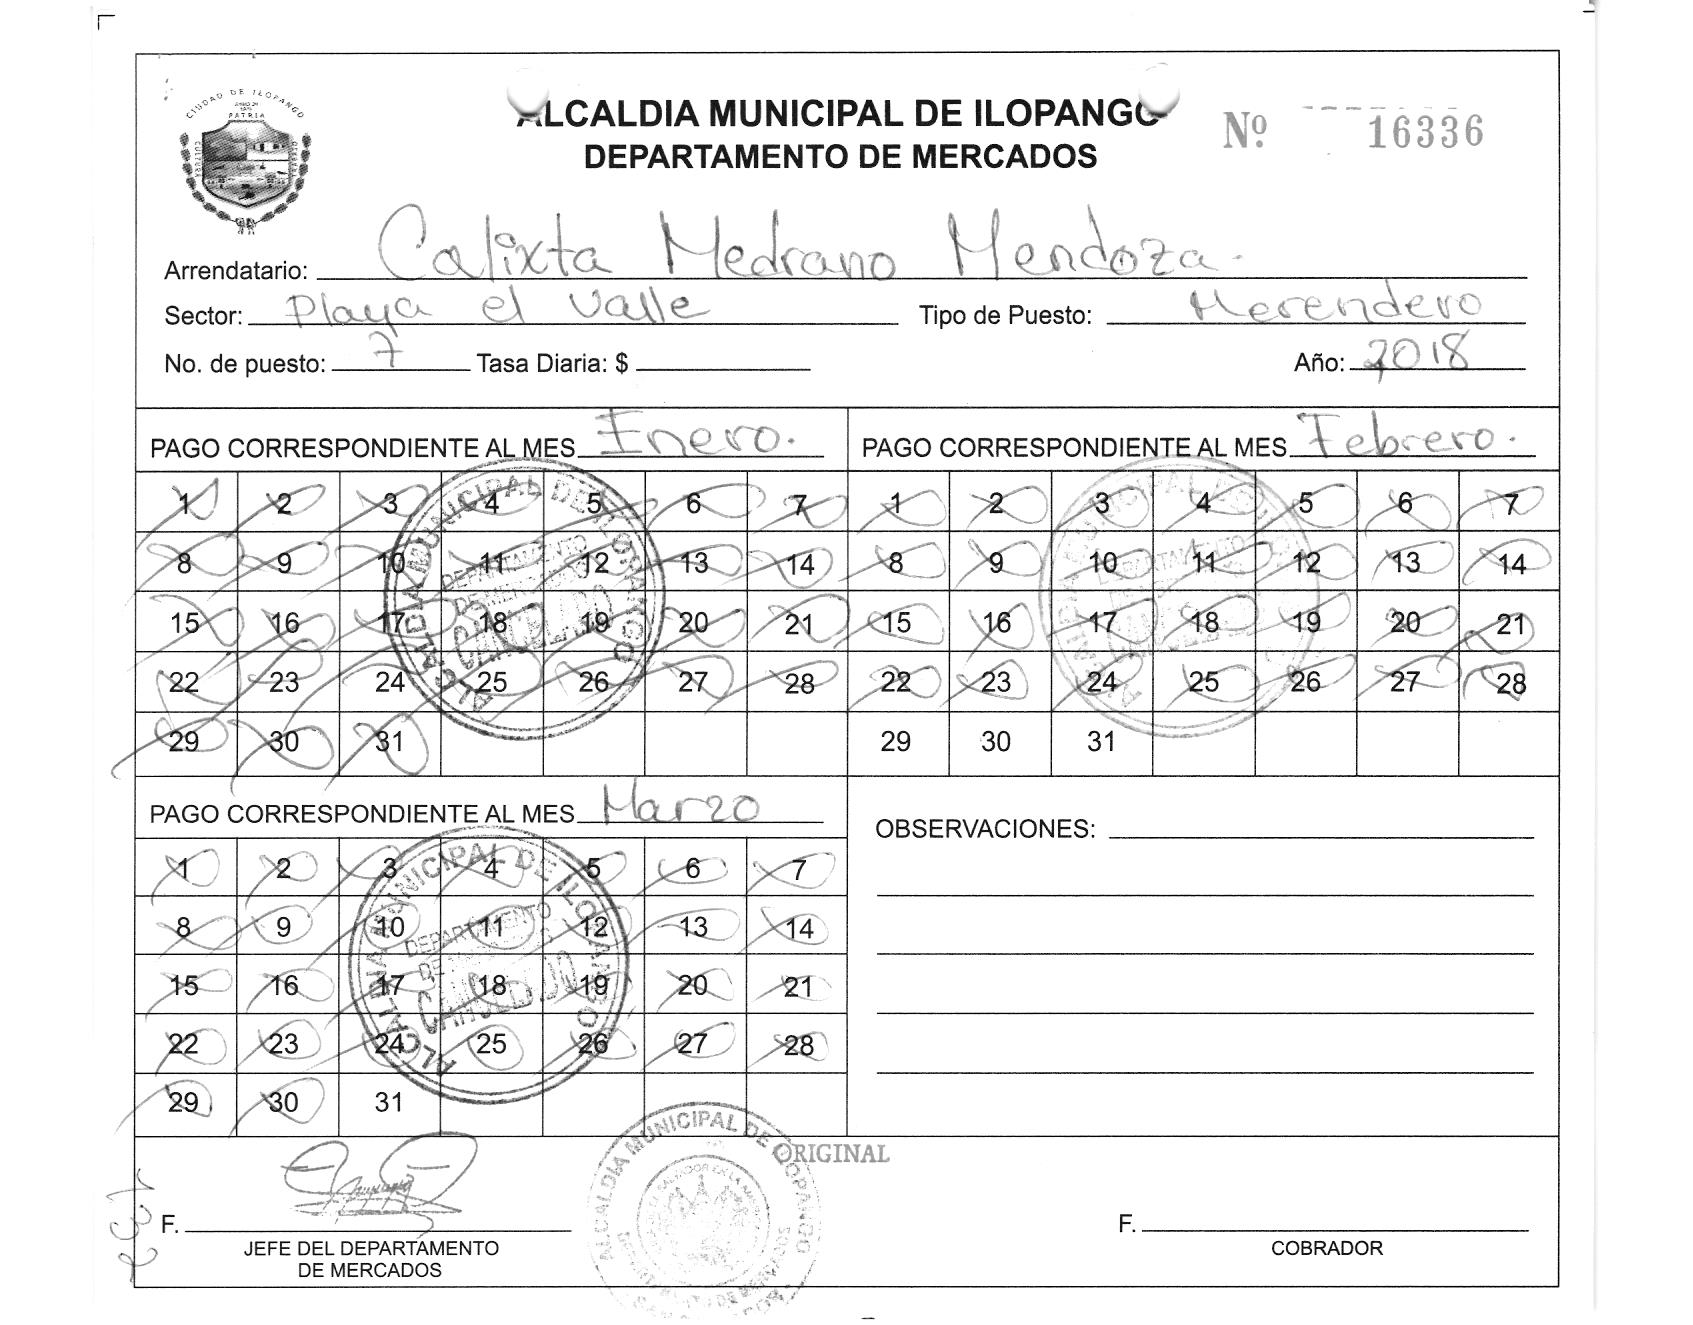 CIUDAD DE ILOPANGO
PATRIA
CULTURA
ALCALDIA MUNICIPAL DE ILOPANGO
DEPARTAMENTO DE MERCADOS
Nº 16336
Arrendatario: Calixta Medrano Mendoza.
Sector: Playa el Valle Tipo de Puesto: Merendero
No. de puesto: 7 Tasa Diaria: $ Año: 2018
PAGO CORRESPONDIENTE AL MES Enero.
1 2 3 4 5 6 7
8 9 10 11 12 13 14
15 16 17 18 19 20 21
22 23 24 25 26 27 28
29 30 31
ALCALDIA MUNICIPAL DE ILOPANGO
DEPARTAMENTO
DE MERCADOS
CANCELADO
PAGO CORRESPONDIENTE AL MES Febrero.
1 2 3 4 5 6 7
8 9 10 11 12 13 14
15 16 17 18 19 20 21
22 23 24 25 26 27 28
29 30 31
PAGO CORRESPONDIENTE AL MES Marzo
1 2 3 4 5 6 7
8 9 10 11 12 13 14
15 16 17 18 19 20 21
22 23 24 25 26 27 28
29 30 31
ALCALDIA MUNICIPAL DE ILOPANGO
DEPARTAMENTO
CANCELADO
OBSERVACIONES:
ALCALDIA MUNICIPAL DE ILOPANGO
ORIGINAL
F.
JEFE DEL DEPARTAMENTO
DE MERCADOS
F.
COBRADOR